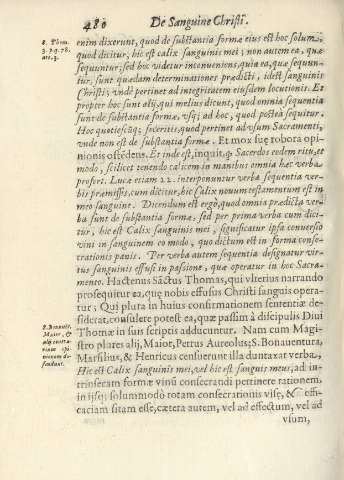 480 De Sanguine Christi.
S. Thom.
3. p. q. 78.
art. 3.
enim dixerunt, quod de substantia formæ eius est hoc solum,
quod dicitur, hic est calix sanguinis mei; non autem ea, quæ
sequuntur; sed hoc videtur inconueniens, quia ea, quæ sequun-
tur, sunt quædam determinationes prædicti, idest sanguinis
Christi; vnde pertinet ad integritatem eiusdem locutionis. Et
propter hoc sunt alij, qui melius dicunt, quod omnia sequentia
sunt de substantia formæ, vsq; ad hoc, quod postea sequitur.
Hoc quotiescũq; feceritis, quod pertinet ad vsum Sacramenti,
vnde non est de substantia formæ. Et mox suę robora opi-
nionis ostẽdens. Et inde est, inquit, q̃ Sacerdos eodem ritu, et
modo, scilicet tenendo calicem in manibus omnia hæc verba
profert. Lucæ etiam 22. interponuntur verba sequentia ver-
bis præmissis, cum dicitur, hic Calix nouum testamentum est in
meo sanguine. Dicendum est ergò, quod omnia prædicta ver-
ba sunt de substantia formæ, sed per prima verba cum dici-
tur, hic est Calix sanguinis mei, significatur ipsa conuersio
vini in sanguinem eo modo, quo dictum est in forma conse-
crationis panis. Per verba autem sequentia designatur vir-
tus sanguinis effusi in passione, quæ operatur in hoc Sacra-
mento. Hactenus Sãctus Thomas, qui vlterius narrando
prosequitur ea, quę nobis effusus Christi sanguis opera-
tur; Qui plura in huius confirmationem sententiæ de-
siderat, consulere potest ea, quæ passim à discipulis Diui
Thomæ in suis scriptis adducuntur. Nam cum Magi-
S. Bonauẽt.
Maior, &
alij
opi-
nionem de-
fendunt.
stro plures alij, Maior, Petrus Aureolus, S. Bonauentura,
Marsilius, & Henricus censuerunt illa duntaxat verba,
Hic est Calix sanguinis mei, vel hic est sanguis meus, ad in-
trinsecam formæ vinũ consecrandi pertinere rationem,
in ijsq; solummodò totam consecrationis vise, & effi-
caciam sitam esse, cætera autem, vel ad effectum, vel ad
vsum,